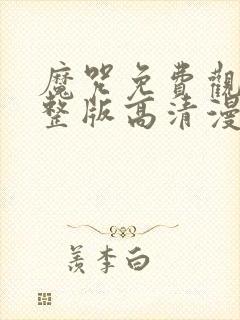 魔咒免費觀
整版高清漫
羨李白